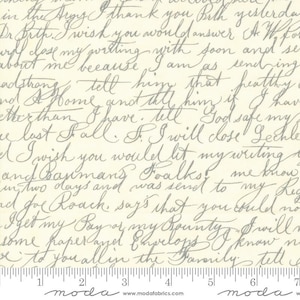 in the Boys I thank you Both yesterday
I wish you would answer
and close my writing with soon and se
about me because I am as send in
tell him that healthy
Home and tell him if I hav
than I have. tell God safe my
last Fall. I will close
I wish you would let my writing
Foalks. me know
in two days and was send to my
Roach. says that you could no
get my Pay or my Bounty I will
some paper and Envelops I know n
to you all in the Family tell
1 2 3 4 5 6 7
moda moda www.modafabrics.com moda